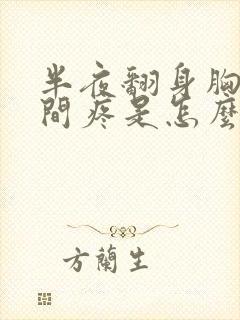 半夜翻身胸
間疼是怎麼
方蘭生